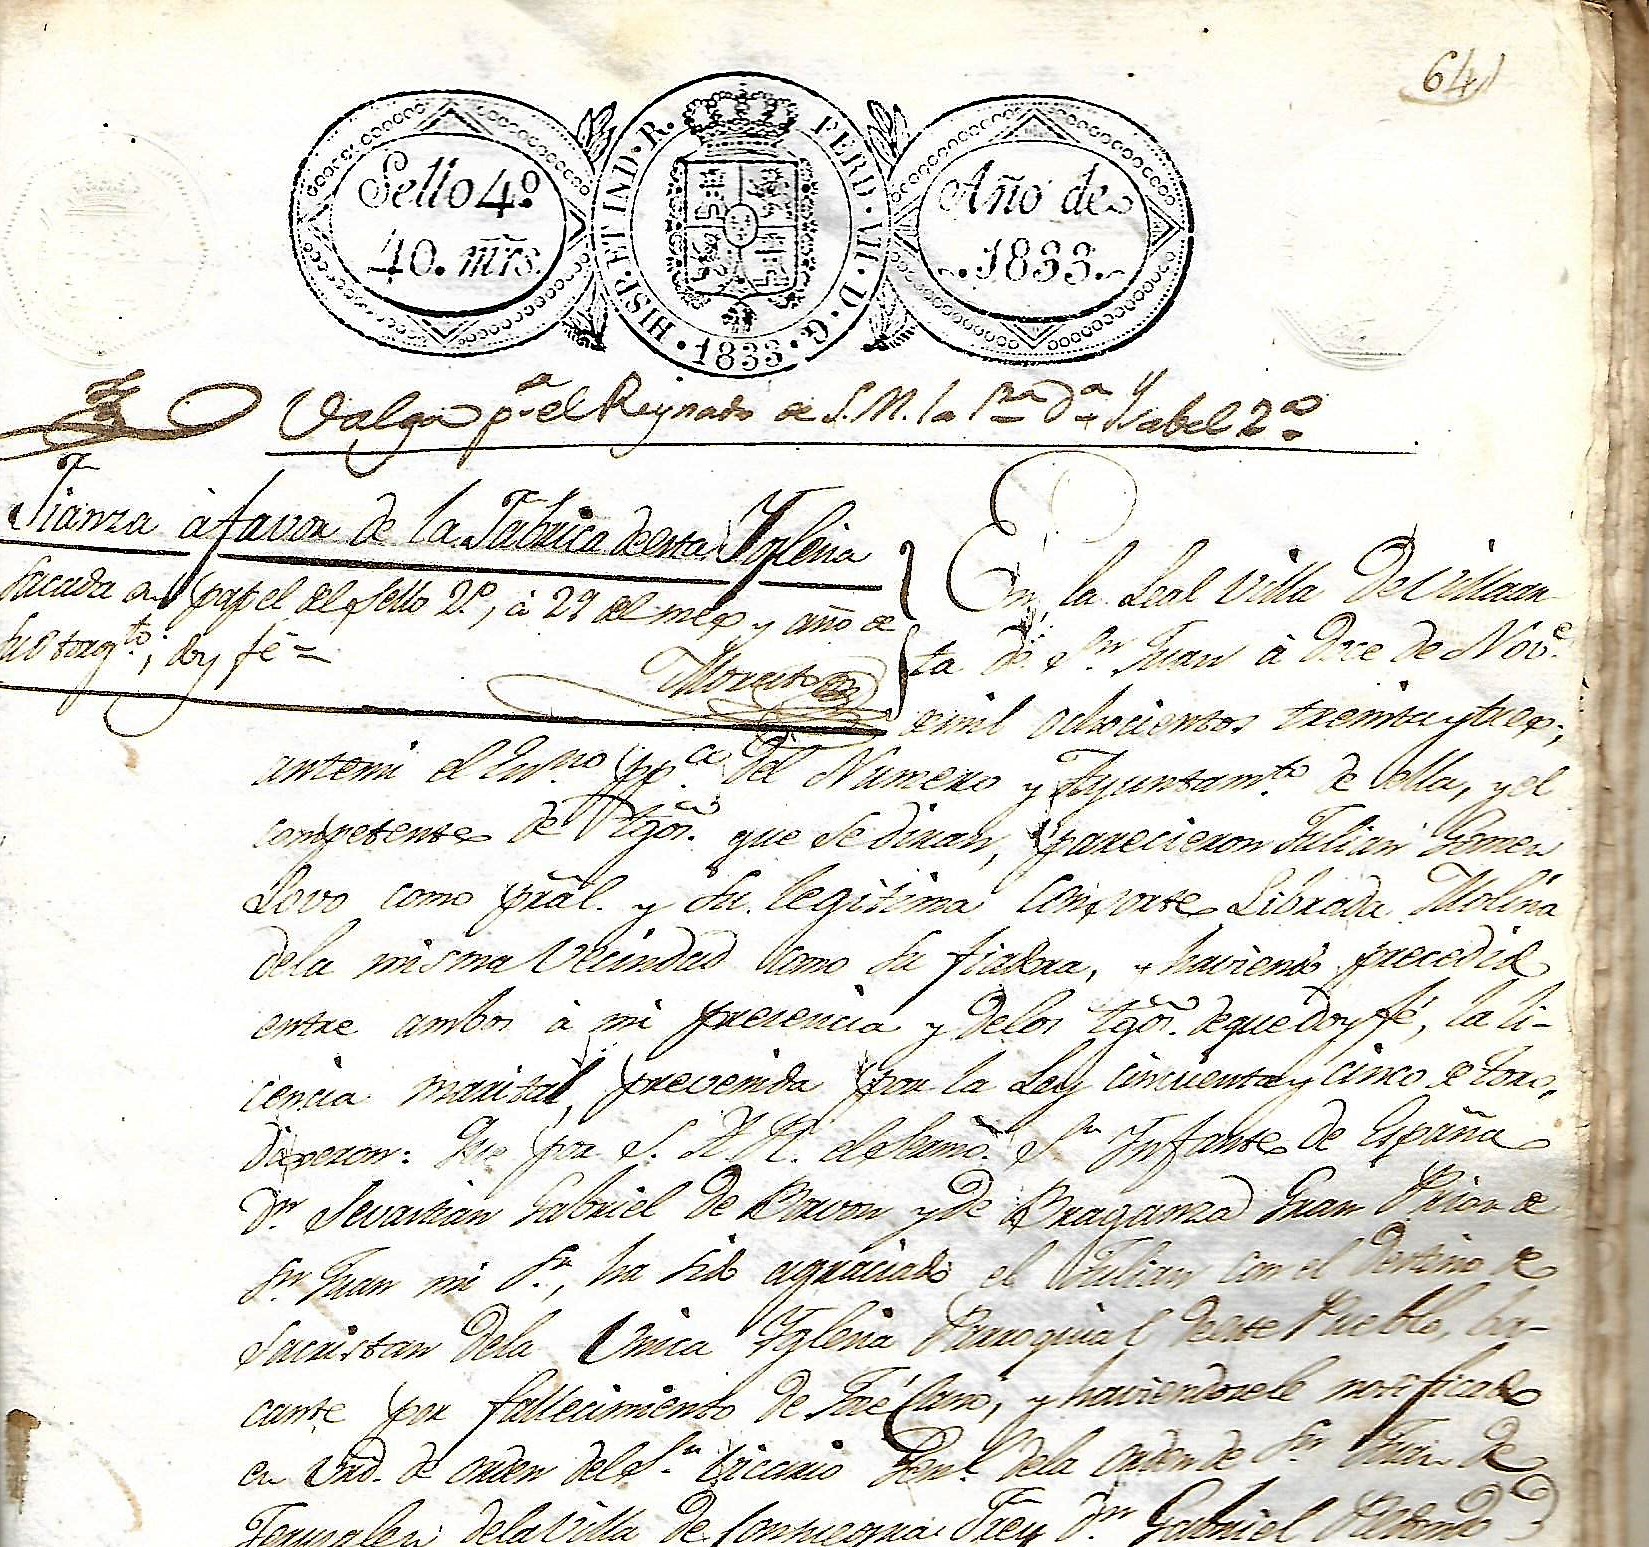 64
Sello 4º
40. mrs.
HISP · ET IND · R. FERD · VII · D · G · 1833 ·
Año de
1833.
Valga pª el Reynado de S. M. la Rna Dª Ysabel 2ª
Fianza à favor de la Fabrica de esta Yglesia
sacada en papel del sello 2º, à 29 del mes y año de
su otorgto; doy fé =
Morato
En la Leal Villa De Villaan
ta de Sn Juan à Doce de Nove
de mil ochocientos treinta y tres;
ante mi el Esno ppco del Numero y Ayuntamto de ella, y el
competente de Tgos. que se diran, parecieron Julian Gomez
Lovo como pral. y su legitima consorte Librada Molina
de la misma Vecindad como su fiadora, y haviendo precedido
entre ambos à mi presencia y de los Tgos. de que doy fé, la li-
cencia marital, prevenida por la Ley cincuenta y cinco de toro,
dixeron: Que por S. A. R. el Sermo. Sr Infante de España
Dn Sevastian Gabriel de Borvon y de Braganza Gran Prior de
Sn Juan mi Sr, ha sido agraciado el Julian con el Destino de
Sacristan de la Unica Yglesia Parroquial de este Pueblo, ba-
cante por fallecimiento de José Cano, y haviendosele notificado
en vird. de orden del Sr Viccario Genl de la orden de Sn Juan de
Jerusalen de la Villa de Consuegra Frey Dn Gabriel